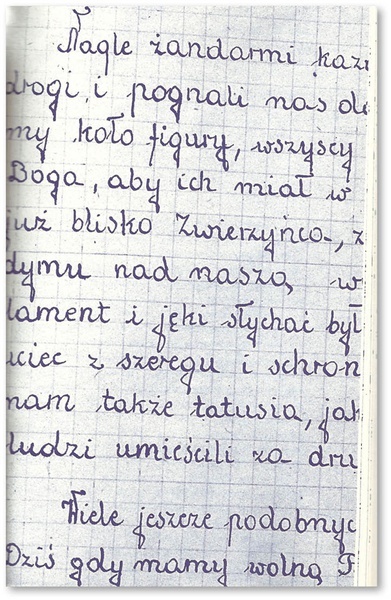 Nagle żandarmi kaz
drogi, i pognali nas do
my koło figury, wszyscy
Boga, aby ich miał w
już blisko Zwierzyńca, z
dymu nad naszą w
lament i jęki słychać był
uciec z szeregu i schron
nam także tatusia, jak
ludzi umieścili za dru
Wiele jeszcze podobnyc
Dziś gdy mamy wolną P